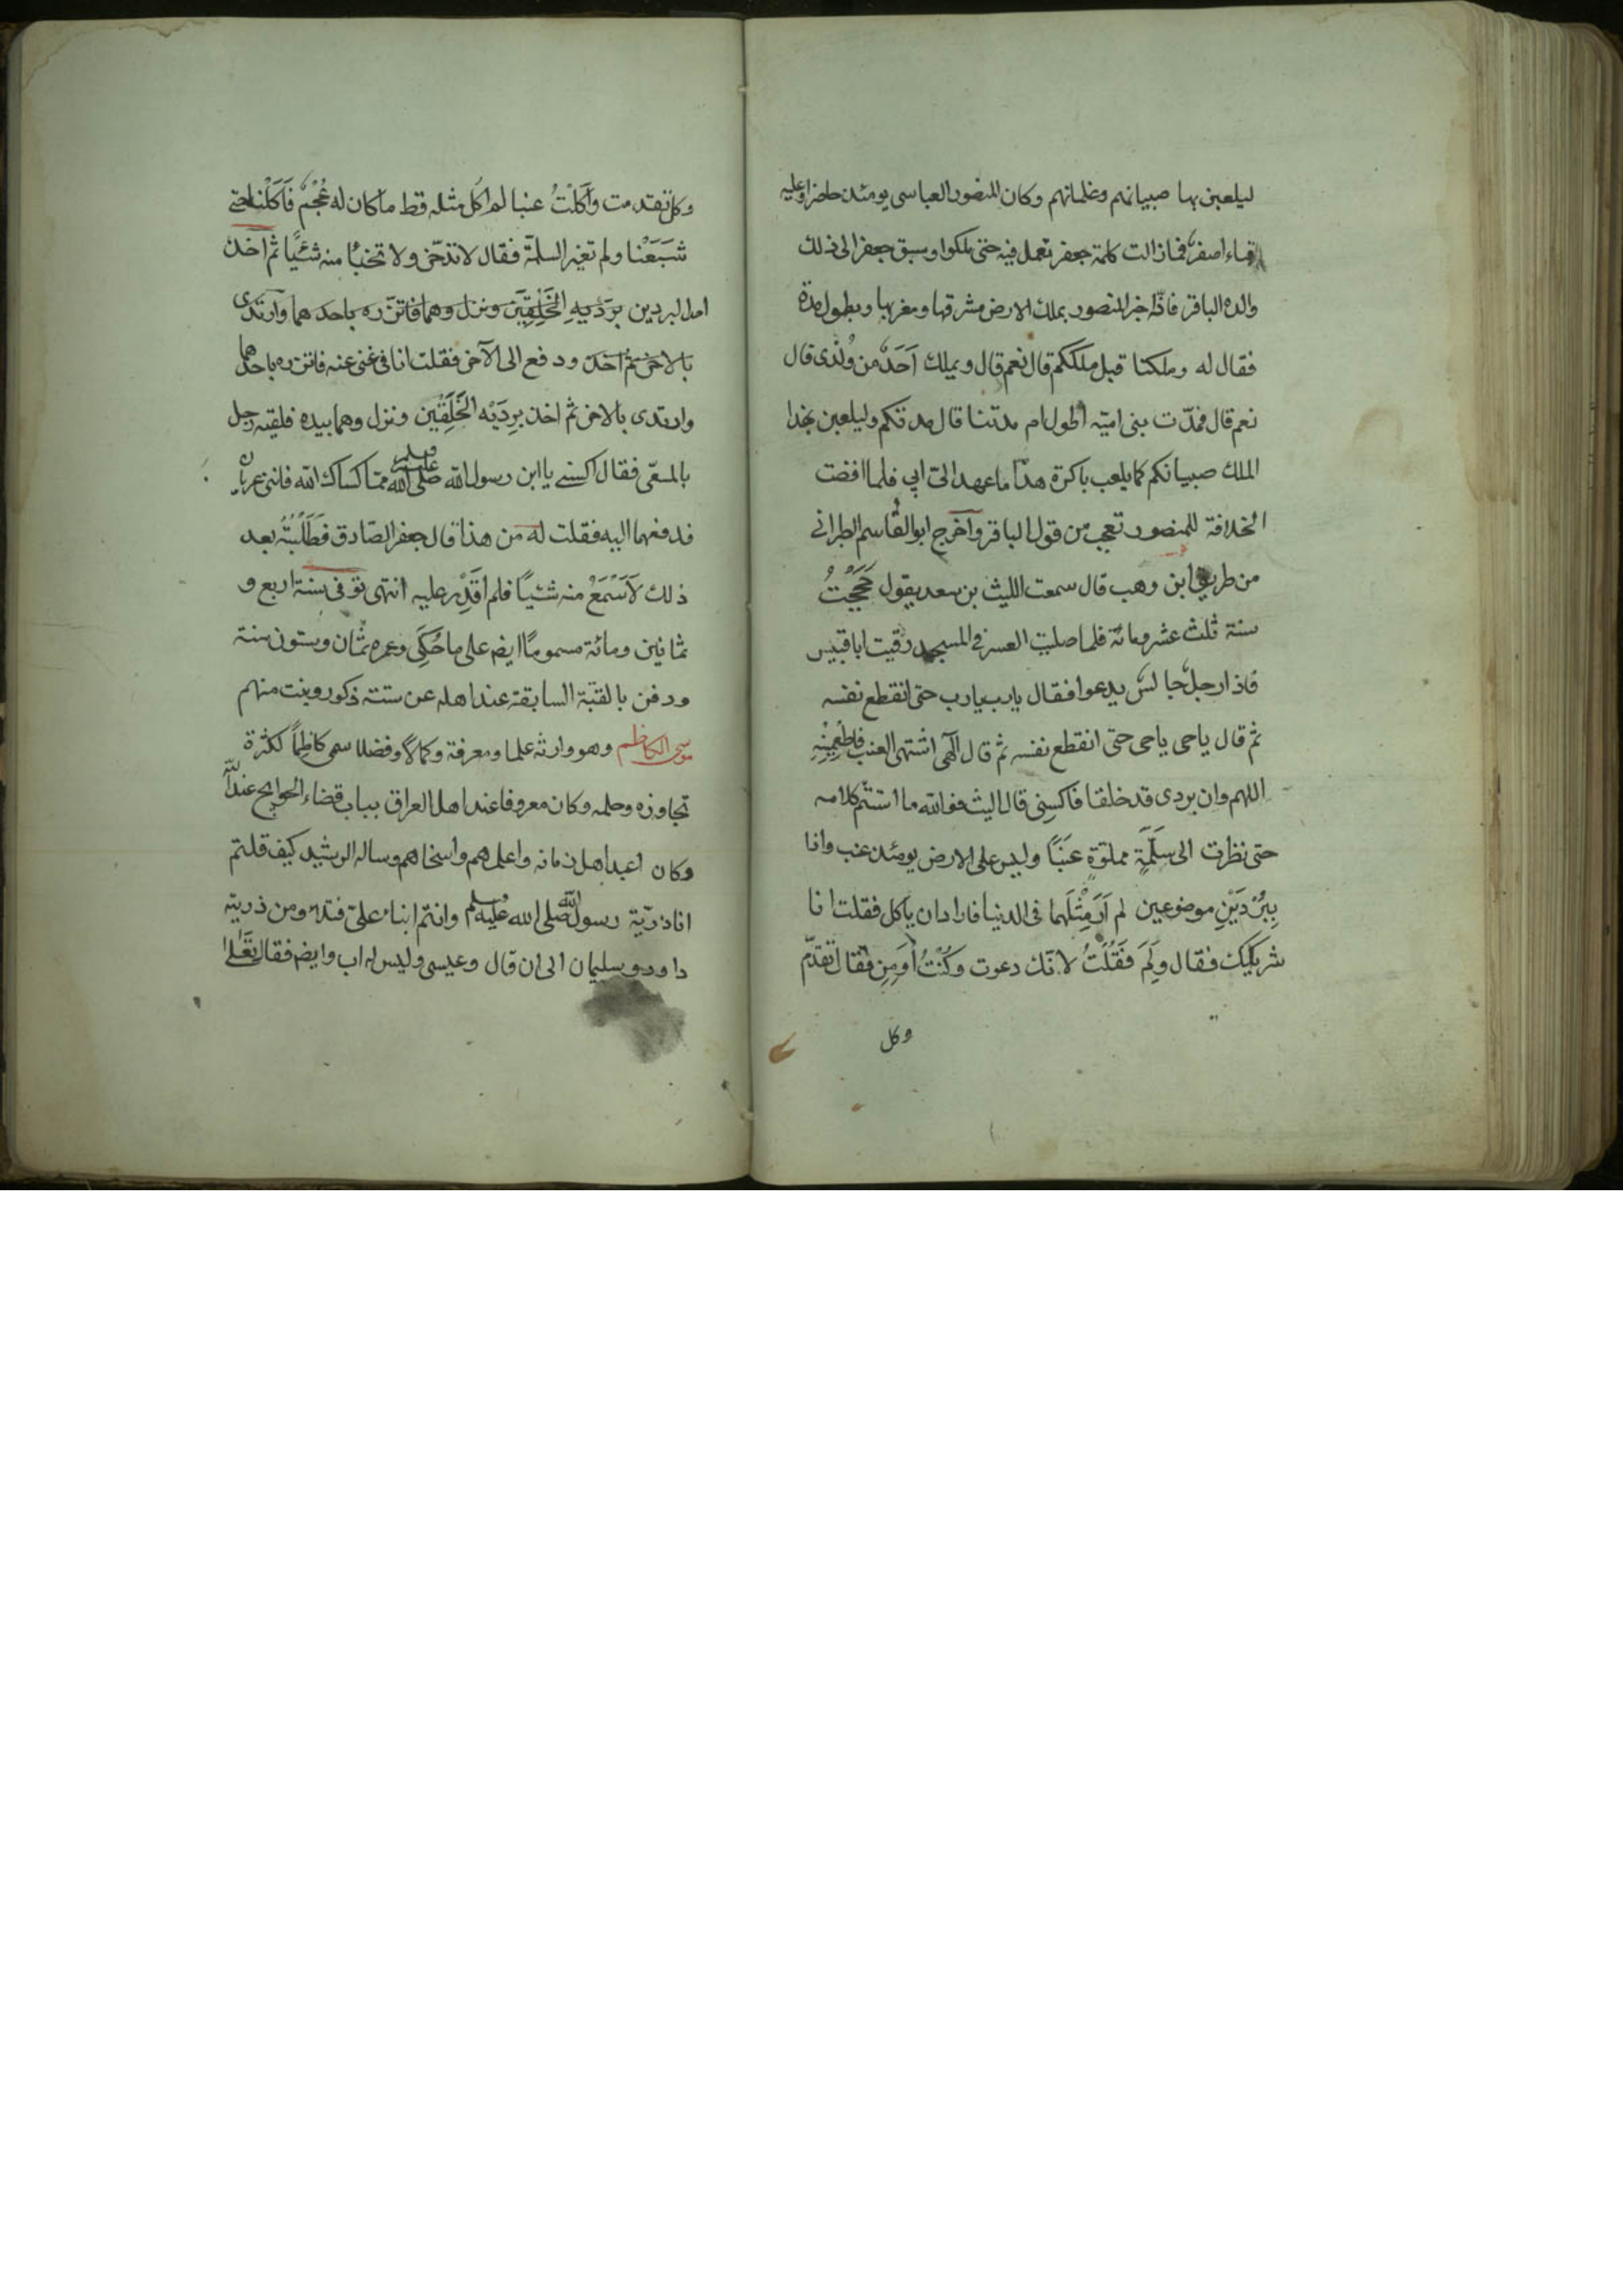 ليلعبن بها صبيانهم وغلمانهم وكان المنصور العباسى يومئذ حاضرا وعليه
قباء اصفر فمازالت كلمة جعفر تعمل فيه حتى ملكوا وسبق جعفر الى ذلك
والده الباقر فانّه اخبر المنصور بملك الارض مشرقها ومغربها وبطول مدة
فقال له وملكنا قبل ملككم قال نعم قال ويملك اَحَدٌ من وُلْدى قال
نعم قال فمدّت بنى اميّه اطول ام مدّتنا قال مدتكم وليلعبن بهذا
الملك صبيانكم كما يلعب باكرة هذا ما عهد الىّ ابي فلما افضت
الخلافة للمنصور تعجب من قول الباقر واَخرج ابو القاسم الطبرانى
من طريق ابن وهب قال سمعت الليث بن سعد يقول حَجَجْتُ
سنة ثلث عشر ومائة فلما صليت العصر فى المسجد رقيت ابا قبيس
فاذا رجلٌ جالسٌ يدعوا فقال يارب يارب حتى انقطع نفسه
ثم قال ياحى ياحى حتى انقطع نفسه ثم قال الٓهى اشتهى العنب فاطعِمْنِيْهِ
اللهم وان بردى قد خلقا فاكسِنى قال الليث فوالله ما استتم كلامه
حتى نظرت الى سَلَّةٍ مملوّةٍ عِنَبًا وليس على الارض يومئذ عنب وانا
بِبُرْدَيْنِ موضوعين لم اَرَ مِثْلَهما فى الدنيا فاراد ان ياكل فقلت انا
شريكك فقال ولِمَ فَقُلْتُ لانّك دعوت وكُنْتُ اُوَمِن فقال تقدّم
وكل
وكل تقدمت واَكَلْتُ عنبا لم اٰكُل مثله قط ما كان له عُجْمٌ فَاَكَلْنا حتى
شَبَعْنا ولم تغير السلّة فقال لا تدّخر ولا تخبأ منه شئيًا ثم اَخذ
احد البردين بردَيه الخَلِقَين ونزل وهما فاتزّره باحدهما وارتدى
بالاخر ثم اَخذ ودفع الى الآخر فقلت انا فى غنى عنه فاتزره باحدهما
وارتدى بالاخر ثم اخذ بردَيْه الخَلَقَيْن ونزل وهما بيده فلقيه رجل
بالمسعى فقال اكسنى يا ابن رسول الله صلى الله عليه وسلم مما كساك الله فاننى عريان
فدفعهما اليه فقلت له من هذا قال جعفر الصّادق فطَلَبْتُهُ بعد
ذلك لاَسْمَعُ منه شئيًا فلم اَقْدِر عليه انتهى توفى سنة اربع و
ثمانين ومائة مسموما ايضا على ما حُكِى وعمره ثمان وستون سنة
ودفن بالقبّة السابقة عند اهله عن ستة ذكور وبنت منهم
موسى الكاظم وهو وارثه علما ومعرفة وكمالا وفضلا سمى كاظِماً لكثرة
تجاوزه وحلمه وكان معروفا عند اهل العراق بباب قضاء الحوايج عند الله
وكان اعبد اهل زمانه واعلمهم واسخاهم وساله الرشيد كيف قلتم
انا ذريّة رسول الله صلى الله عليه وسلم وانتم ابناء علىّ فتلا ومن ذريته
داود وسليمان الى ان قال وعيسى وليس له اب وايضا فقال تَعٰلى